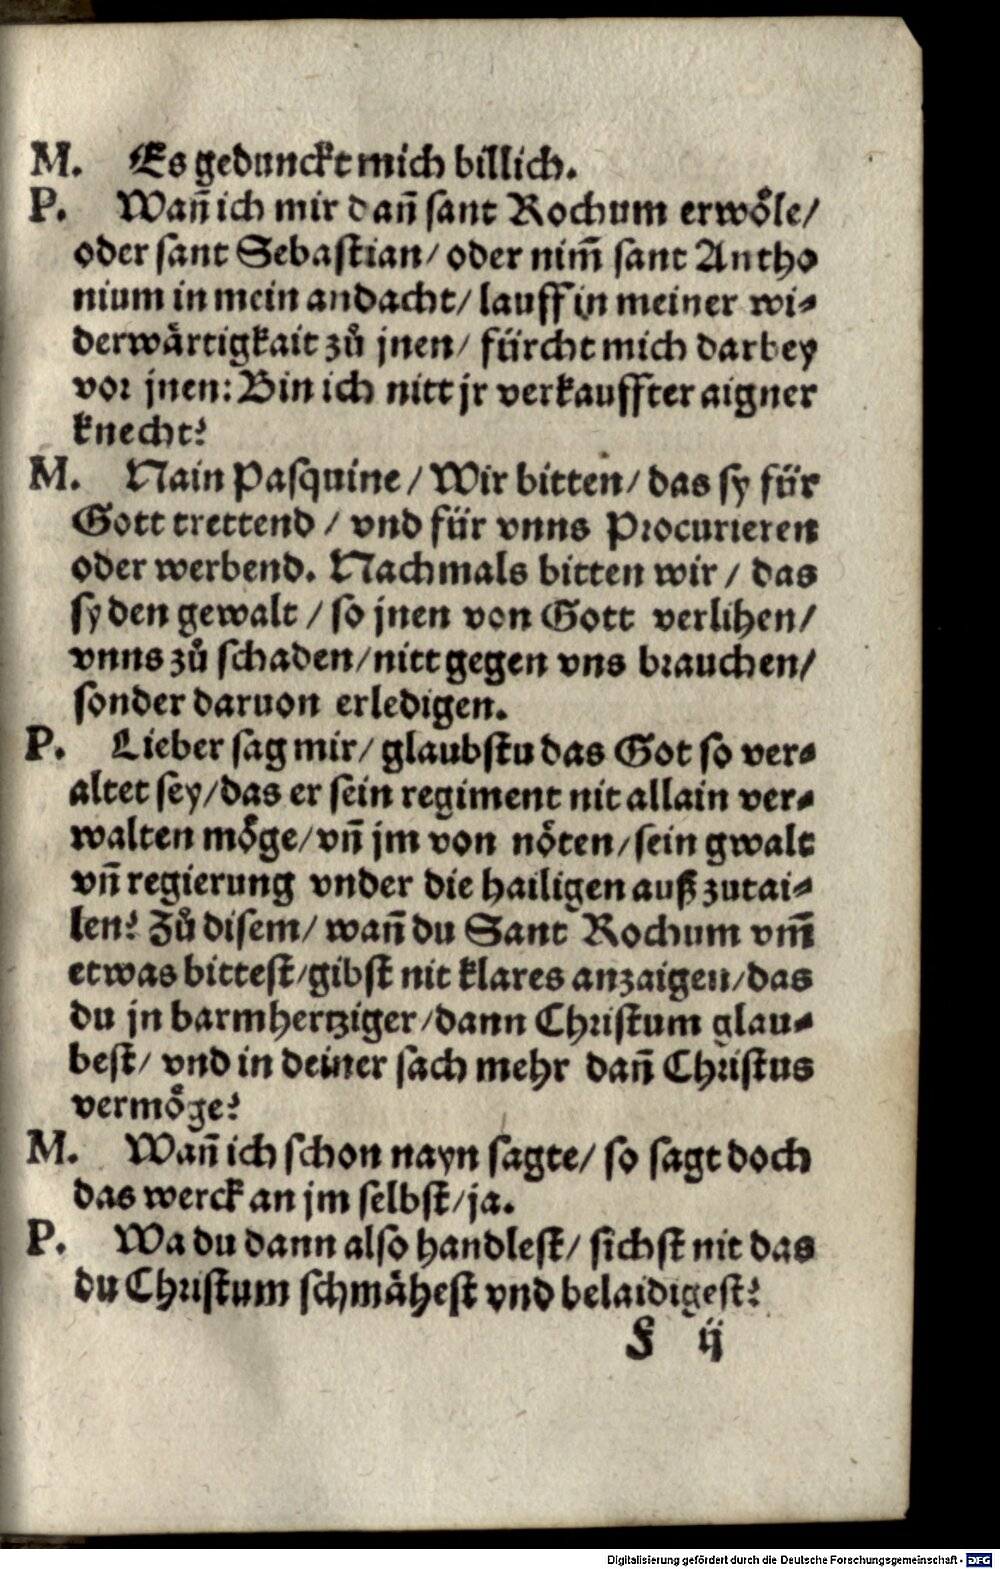 M. Es gedunckt mich billich.
P. Wañ ich mir dañ sant Rochum erwöle/
oder sant Sebastian/ oder nim̄ sant Antho
nium in mein andacht/ lauff in meiner wi-
derwärtigkait zů jnen/ fürcht mich darbey
vor jnen: Bin ich nitt jr verkauffter aigner
knecht?
M. Nain Pasquine/ Wir bitten/ das sy für
Gott trettend/ vnd für vnns Procurieren
oder werbend. Nachmals bitten wir/ das
sy den gewalt/ so jnen von Gott verlihen/
vnns zů schaden/ nitt gegen vns brauchen/
sonder daruon erledigen.
P. Lieber sag mir/ glaubstu das Got so ver-
altet sey/ das er sein regiment nit allain ver-
walten möge/ vñ jm von nöten/ sein gwalt
vñ regierung vnder die hailigen auß zutai-
len? Zů disem/ wañ du Sant Rochum vm̄
etwas bittest/ gibst nit klares anzaigen/ das
du jn barmhertziger/ dann Christum glau-
best/ vnd in deiner sach mehr dañ Christus
vermöge?
M. Wañ ich schon nayn sagte/ so sagt doch
das werck an jm selbst/ ja.
P. Wa du dann also handlest/ sichst nit das
du Christum schmähest vnd belaidigest?
F ij
Digitalisierung gefördert durch die Deutsche Forschungsgemeinschaft - DFG